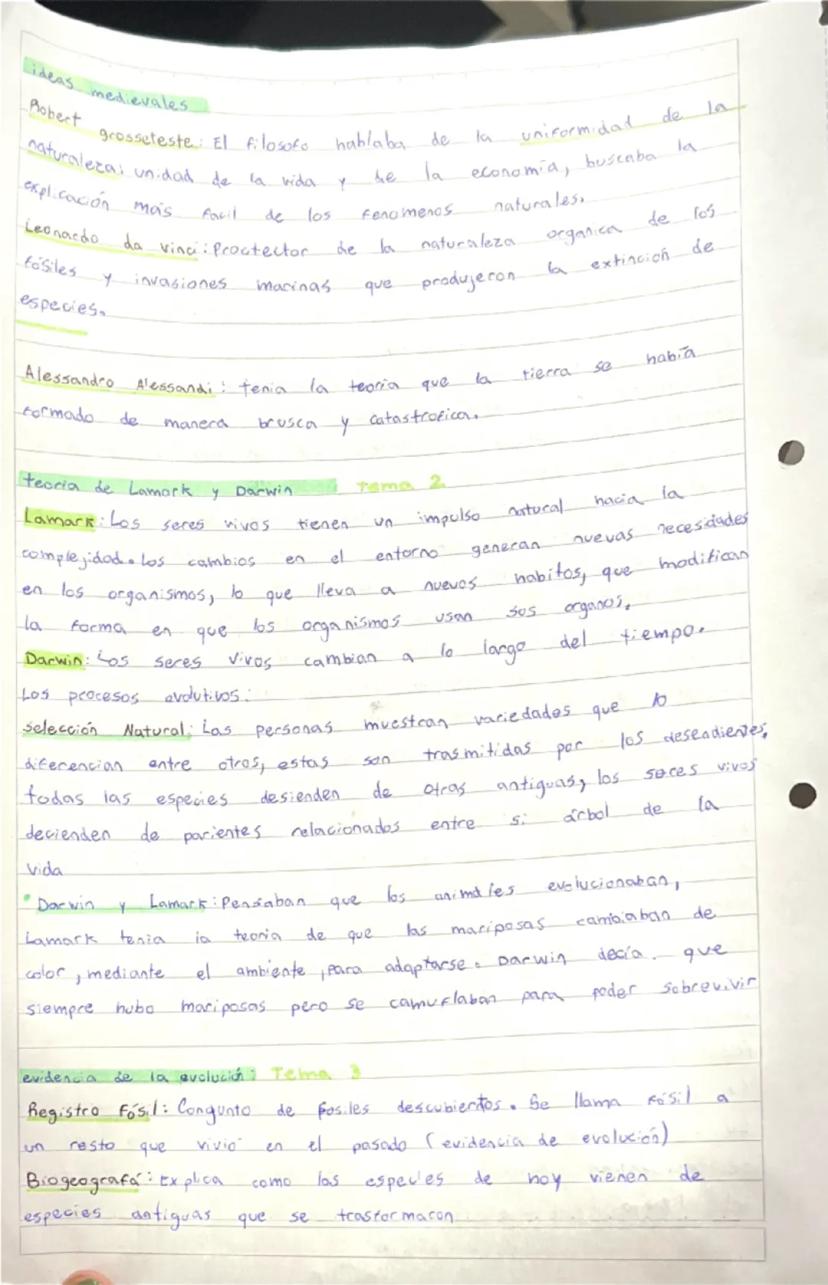 ideas medievales
Robert grosseteste: El filosofo hablaba de la uniformidad de la
naturaleza: unidad de la vida y de la economía, buscaba la
explicación mas facil de los fenomenos naturales.
Leonardo da vinci: Proctector de la naturaleza organica de los
fósiles y invasiones marinas que produjeron la extinción de
especies.
Alessandro Alessandi: tenia la teoria que la tierra se había
formado de manera brusca y catastrofica.
teoria de Lamark y Darwin Tema 2
Lamark: Los seres vivos tienen un impulso natural hacia la
complejidad. los cambios en el entorno generan nuevas necesidades
en los organismos, lo que lleva a nuevos habitos, que modifican
la forma en que los organismos usan sus organos.
Darwin: Los seres vivos cambian a lo largo del tiempo.
Los procesos evolutivos:
selección Natural: Las personas muestran variedades que lo
diferencian entre otros, estas son trasmitidas por los desendientes,
todas las especies desienden de otras antiguas, los seres vivos
decienden de parientes relacionados entre si árbol de la
vida
• Darwin y Lamark: Pensaban que los animales evolucionaban,
Lamark tenia la teoria de que las mariposas cambiaban de
color, mediante el ambiente, para adaptarse. Darwin decía que
siempre hubo mariposas pero se camuflaban para poder sobrevivir
evidencia de la evolución: Tema 3
Registro Fósil: Congunto de fosiles descubiertos. Se llama fósil a
un resto que vivió en el pasado (evidencia de evolución)
Biogeografá: Explica como las especies de hoy vienen de
especies antiguas que se trasformaron